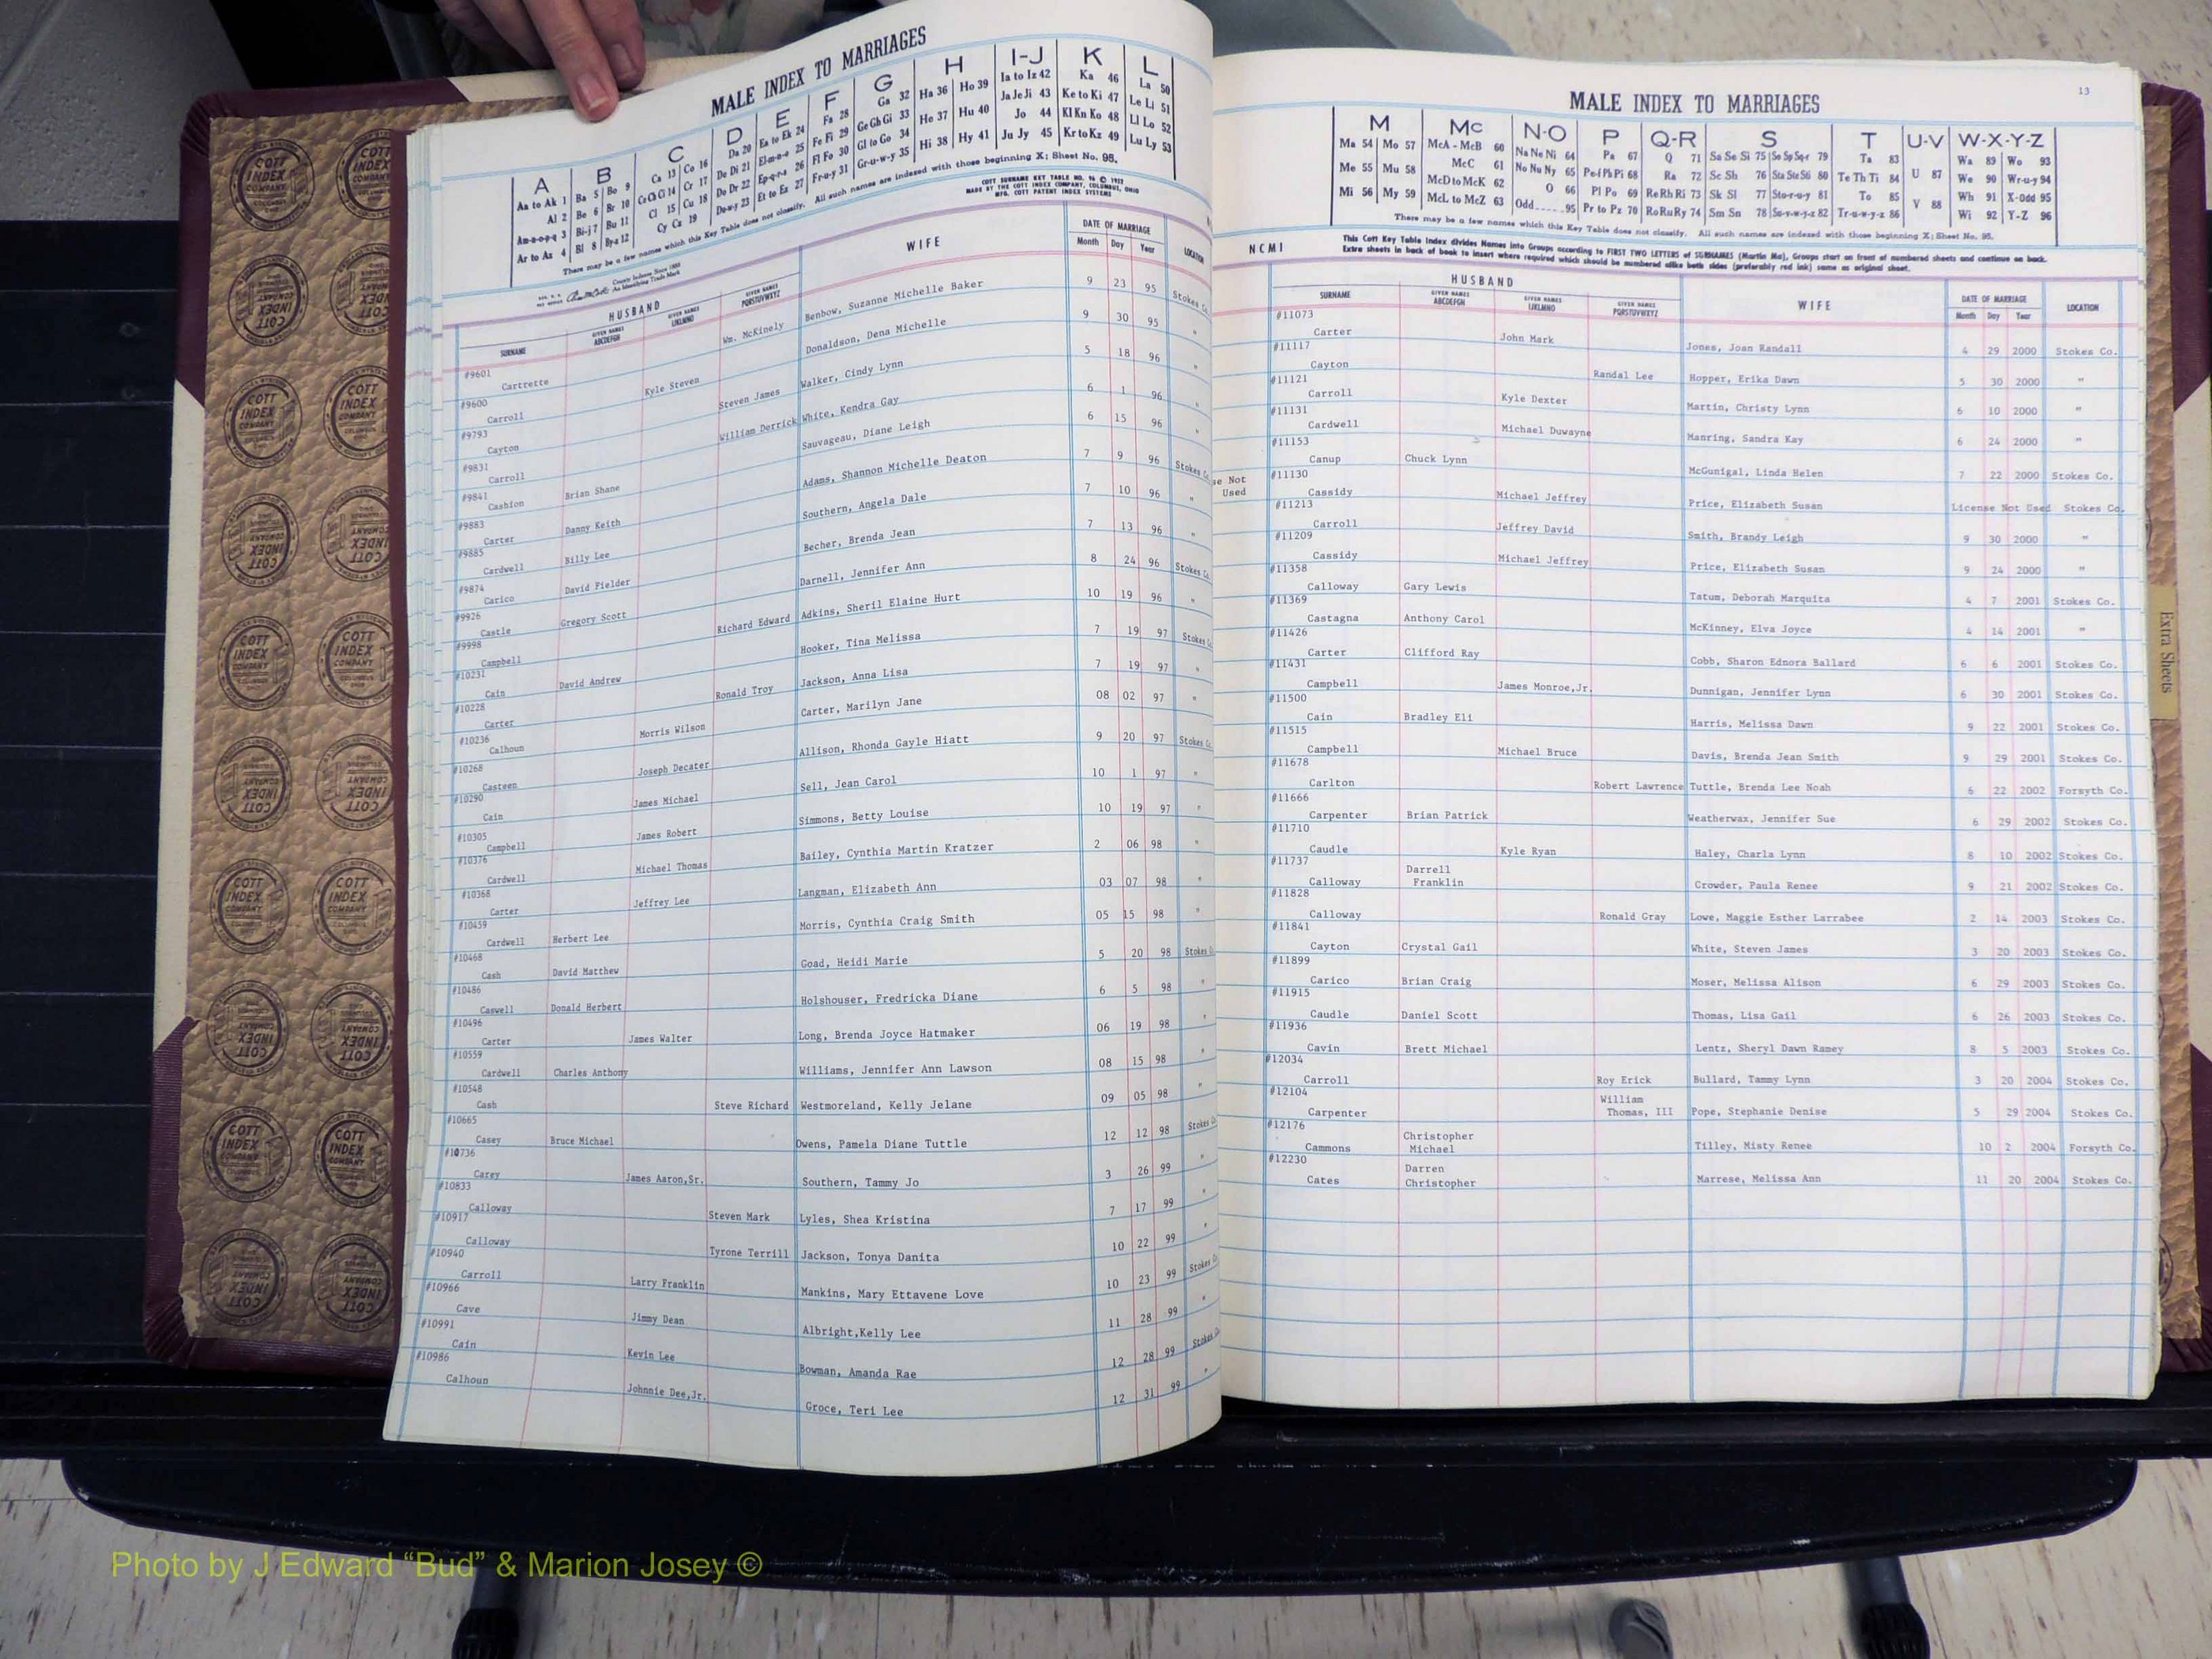 MALE INDEX TO MARRIAGES
A B C D E F G H I-J K L
Aa to Ak 1 Ba 5 Bo 9 Ca 13 Co 16 Da 20 Ea to Ek 24 Fa 28 Ga 32 Ha 36 Ho 39 Ia to Iz 42 Ka 46 La 50
Al 2 Be 6 Br 10 Ce Ch Ci 14 Cr 17 De Di 21 El-m-n-o 25 Fe Fi 29 Ge Gh Gi 33 He 37 Hu 40 Ja Je Ji 43 Ke to Ki 47 Le Li 51
Am-n-o-p-q 3 Bi-j 7 Bu 11 Cl 15 Cu 18 Do Dr 22 Ep-q-r-s 26 Fl Fo 30 Gl to Go 34 Hi 38 Hy 41 Jo 44 Kl Kn Ko 48 Ll Lo 52
Ar to Az 4 Bl 8 By-z 12 Cy Cz 19 Du-w-y 23 Et to Ez 27 Fr-u-y 31 Gr-u-w-y 35 Ju Jy 45 Kr to Kz 49 Lu Ly 53
There may be a few names which this Key Table does not classify. All such names are indexed with those beginning X; Sheet No. 95.
COTT SURNAME KEY TABLE NO. 96 © 1952
MADE BY THE COTT INDEX COMPANY, COLUMBUS, OHIO
MFG. COTT PATENT INDEX SYSTEMS
HUSBAND WIFE DATE OF MARRIAGE LOCATION
SURNAME GIVEN NAMES ABCDEFGH GIVEN NAMES IJKLMNO GIVEN NAMES PQRSTUVWXYZ Month Day Year
#9601 Cartrette Wm. McKinely Benbow, Suzanne Michelle Baker 9 23 95 Stokes
#9600 Carroll Kyle Steven Donaldson, Dena Michelle 9 30 95 "
#9793 Cayton Steven James Walker, Cindy Lynn 5 18 96 "
#9831 Carroll William Derrick White, Kendra Gay 6 1 96 "
#9841 Cashion Brian Shane Sauvageau, Diane Leigh 6 15 96 "
#9883 Carter Danny Keith Adams, Shannon Michelle Deaton 7 9 96 Stokes
#9885 Cardwell Billy Lee Southern, Angela Dale 7 10 96 "
#9874 Carico David Fielder Becher, Brenda Jean 7 13 96 "
#9926 Castle Gregory Scott Darnell, Jennifer Ann 8 24 96 Stokes
#9998 Campbell Richard Edward Adkins, Sheril Elaine Hurt 10 19 96 "
#10231 Cain David Andrew Hooker, Tina Melissa 7 19 97 Stokes
#10228 Carter Ronald Troy Jackson, Anna Lisa 7 19 97 "
#10236 Calhoun Morris Wilson Carter, Marilyn Jane 08 02 97 "
#10268 Casteen Joseph Decater Allison, Rhonda Gayle Hiatt 9 20 97 Stokes
#10290 Cain James Michael Sell, Jean Carol 10 1 97 "
#10305 Campbell James Robert Simmons, Betty Louise 10 19 97 "
#10376 Cardwell Michael Thomas Bailey, Cynthia Martin Kratzer 2 06 98 "
#10368 Carter Jeffrey Lee Langman, Elizabeth Ann 03 07 98 "
#10459 Cardwell Herbert Lee Morris, Cynthia Craig Smith 05 15 98 "
#10468 Cash David Matthew Goad, Heidi Marie 5 20 98 Stokes
#10486 Caswell Donald Herbert Holshouser, Fredricka Diane 6 5 98 "
#10496 Carter James Walter Long, Brenda Joyce Hatmaker 06 19 98 "
#10559 Cardwell Charles Anthony Williams, Jennifer Ann Lawson 08 15 98 "
#10548 Cash Steve Richard Westmoreland, Kelly Jelane 09 05 98 "
#10665 Casey Bruce Michael Owens, Pamela Diane Tuttle 12 12 98 Stokes
#10736 Carey James Aaron,Sr. Southern, Tammy Jo 3 26 99 "
#10833 Calloway Steven Mark Lyles, Shea Kristina 7 17 99 "
#10917 Calloway Tyrone Terrill Jackson, Tonya Danita 10 22 99 "
#10940 Carroll Larry Franklin Mankins, Mary Ettavene Love 10 23 99 Stokes
#10966 Cave Jimmy Dean Albright,Kelly Lee 11 28 99 "
#10991 Cain Kevin Lee Bowman, Amanda Rae 12 28 99 Stokes
#10986 Calhoun Johnnie Dee,Jr. Groce, Teri Lee 12 31 99 "
13
MALE INDEX TO MARRIAGES
M Mc N-O P Q-R S T U-V W-X-Y-Z
Ma 54 Mo 57 McA - McB 60 Na Ne Ni 64 Pa 67 Q 71 Sa Se Si 75 So Sp Sq-r 79 Ta 83 U 87 Wa 89 Wo 93
Me 55 Mu 58 McC 61 No Nu Ny 65 Pe-f Ph Pi 68 Ra 72 Sc Sh 76 Sta Ste S6 80 Te Th Ti 84 We 90 Wr-u-y 94
Mi 56 My 59 McD to McK 62 O 66 Pl Po 69 Re Rh Ri 73 Sk Sl 77 Sto-r-u-y 81 To 85 V 88 Wh 91 X-odd 95
McL to McZ 63 Odd.....95 Pr to Pz 70 Ro Ru Ry 74 Sm Sn 78 Su-v-w-y-z 82 Tr-u-w-y-z 86 Wi 92 Y-Z 96
There may be a few names which this Key Table does not classify. All such names are indexed with those beginning X; Sheet No. 95.
NCMI
This Cott Key Table Index divides Names into Groups according to FIRST TWO LETTERS of SURNAMES (Martin Ma), Groups start on front of numbered sheets and continue on back.
Extra sheets in back of book to insert where required which should be numbered alike both sides (preferably red ink) same as original sheet.
HUSBAND WIFE DATE OF MARRIAGE LOCATION
SURNAME GIVEN NAMES ABCDEFGH GIVEN NAMES IJKLMNO GIVEN NAMES PQRSTUVWXYZ Month Day Year
#11073 Carter John Mark Jones, Joan Randall 4 29 2000 Stokes Co.
#11117 Cayton Randal Lee Hopper, Erika Dawn 5 30 2000 "
#11121 Carroll Kyle Dexter Martin, Christy Lynn 6 10 2000 "
#11131 Cardwell Michael Duwayne Manring, Sandra Kay 6 24 2000 "
#11153 Canup Chuck Lynn McGunigal, Linda Helen 7 22 2000 Stokes Co.
se Not
Used
#11130 Cassidy Michael Jeffrey Price, Elizabeth Susan License Not Used Stokes Co.
#11213 Carroll Jeffrey David Smith, Brandy Leigh 9 30 2000 "
#11209 Cassidy Michael Jeffrey Price, Elizabeth Susan 9 24 2000 "
#11358 Calloway Gary Lewis Tatum, Deborah Marquita 4 7 2001 Stokes Co.
#11369 Castagna Anthony Carol McKinney, Elva Joyce 4 14 2001 "
#11426 Carter Clifford Ray Cobb, Sharon Ednora Ballard 6 6 2001 Stokes Co.
#11431 Campbell James Monroe,Jr. Dunnigan, Jennifer Lynn 6 30 2001 Stokes Co.
#11500 Cain Bradley Eli Harris, Melissa Dawn 9 22 2001 Stokes Co.
#11515 Campbell Michael Bruce Davis, Brenda Jean Smith 9 29 2001 Stokes Co.
#11678 Carlton Robert Lawrence Tuttle, Brenda Lee Noah 6 22 2002 Forsyth Co.
#11666 Carpenter Brian Patrick Weatherwax, Jennifer Sue 6 29 2002 Stokes Co.
#11710 Caudle Kyle Ryan Haley, Charla Lynn 8 10 2002 Stokes Co.
#11737 Calloway Darrell Franklin Crowder, Paula Renee 9 21 2002 Stokes Co.
#11828 Calloway Ronald Gray Lowe, Maggie Esther Larrabee 2 14 2003 Stokes Co.
#11841 Cayton Crystal Gail White, Steven James 3 20 2003 Stokes Co.
#11899 Carico Brian Craig Moser, Melissa Alison 6 29 2003 Stokes Co.
#11915 Caudle Daniel Scott Thomas, Lisa Gail 6 26 2003 Stokes Co.
#11936 Cavin Brett Michael Lentz, Sheryl Dawn Ramey 8 5 2003 Stokes Co.
#12034 Carroll Roy Erick Bullard, Tammy Lynn 3 20 2004 Stokes Co.
#12104 Carpenter William Thomas, III Pope, Stephanie Denise 5 29 2004 Stokes Co.
#12176 Cammons Christopher Michael Tilley, Misty Renee 10 2 2004 Forsyth Co.
#12230 Cates Darren Christopher Marrese, Melissa Ann 11 20 2004 Stokes Co.
Extra Sheets
COTT INDEX COMPANY COLUMBUS OHIO
Photo by J Edward “Bud” & Marion Josey ©